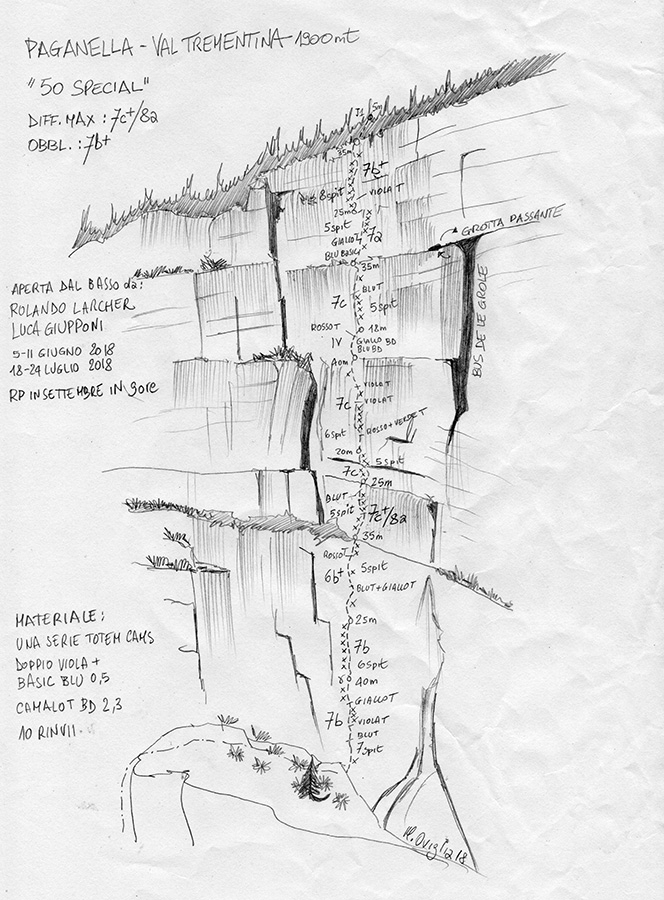 PAGANELLA - VAL TREMENTINA - 1900 mt
"50 SPECIAL"
DIFF. MAX : 7c+/8a
OBBL. : 7b+
5m
35m
7b+
8spit
VIOLA T
25m
5spit
GIALLO T
7a
BLU BASIC
35m
GROTTA PASSANTE
BUS DE LE GROLE
APERTA DAL BASSO da:
ROLANDO LARCHER
LUCA GIUPPONI
5-11 GIUGNO 2018
18-24 LUGLIO 2018
RP IN SETTEMBRE IN 9ore
BLU T
7c
5spit
ROSSO T
18m
IV
GIALLO BD
BLU BD
40m
VIOLA T
7c
VIOLA T
6spit
ROSSO + VERDE T
20m
7c
5spit
25m
BLU T
5spit
7c+/8a
35m
ROSSO T
6b+
5spit
BLU T + GIALLO T
25m
7b
6spit
40m
GIALLO T
7b
VIOLA T
BLU T
7spit
MATERIALE:
UNA SERIE TOTEM CAMS
DOPPIO VIOLA +
BASIC BLU 0,5
CAMALOT BD 2,3
10 RINVII
M. Oviglia 18